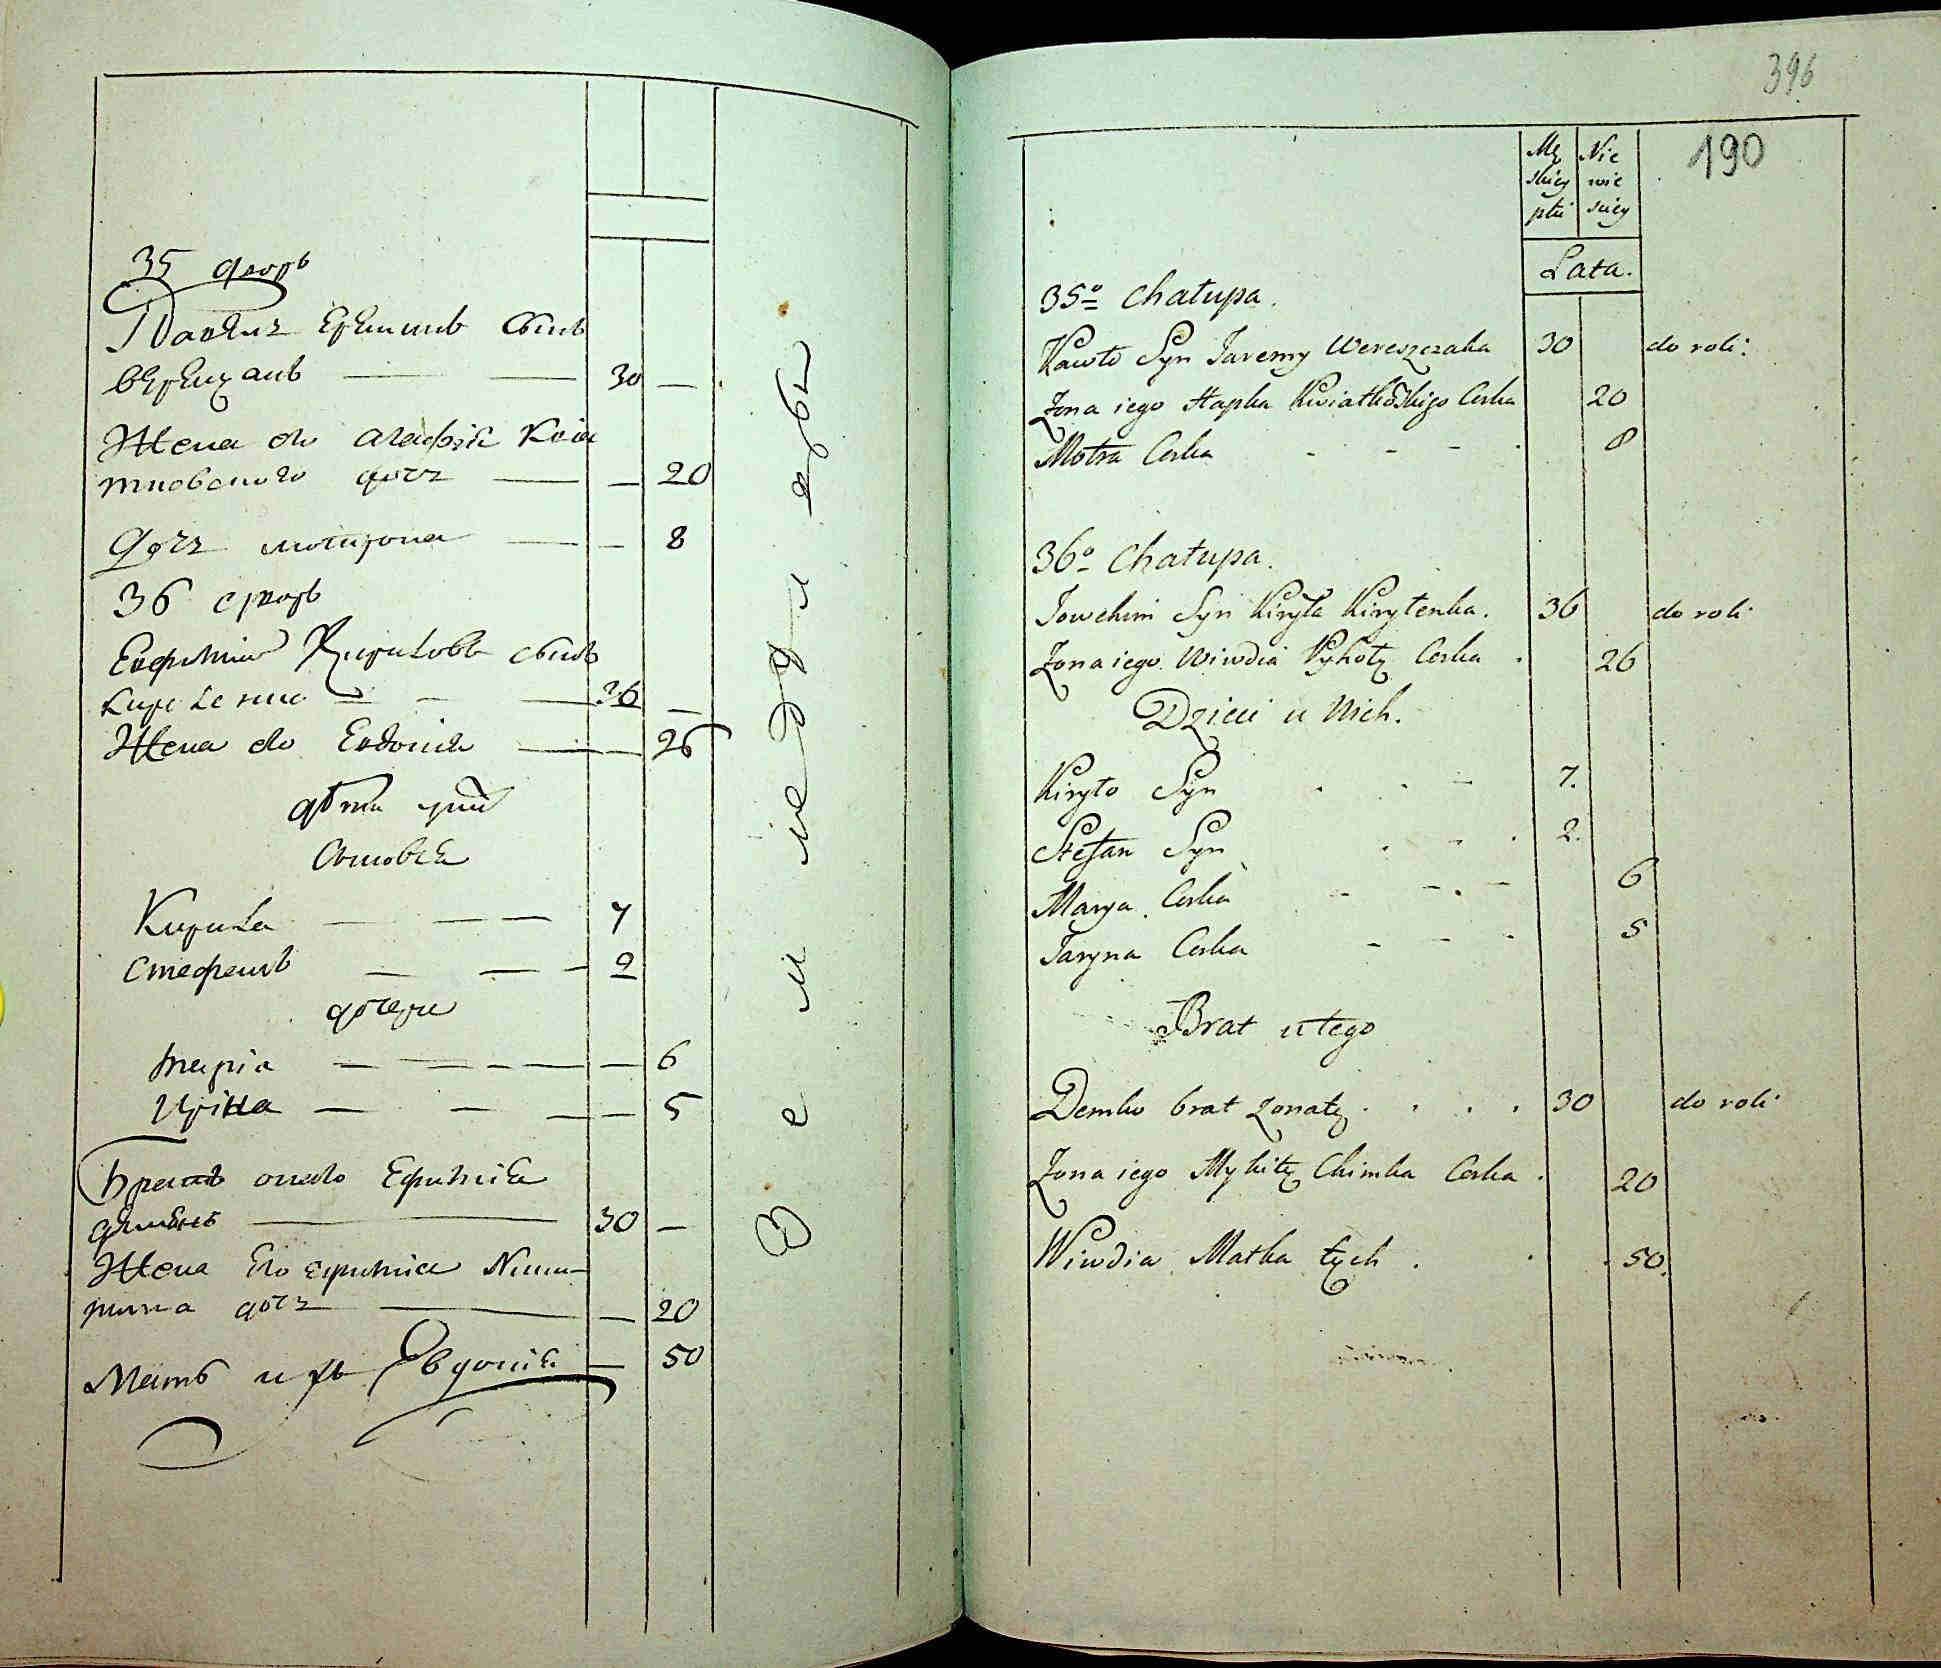 35 дворъ
Павелъ Еремиивъ сынъ
верещакъ — — 30 —
Жена его Агафія Квіа
тковского дочъ — — 20
Дочъ мотрона — — 8
36 дворъ
Ефимъ Кириловъ сынъ
кириленко — — 36 —
Жена его Евдокия — — 26
дѣти у них
Сыновья
Кирила — — — 7
Стефанъ — — — 2
дочери
Марія — — — — 6
Ирина — — — — 5
Братъ оного Ефима
Демко — 30 —
Жена его Ники-
тина дочъ — — 20
Мать ихъ Евдокия — 50
396
190
Mę Nie
skiey wie
płci sciey
Lata.
35º Chałupa.
Pawło Syn Jaremy Wereszczaka 30 do roli.
Żona iego Hapka Kwiatkowskiego Corka 20
Motra Corka - - - 8
36º Chałupa.
Jowchim Syn Kiryła Kirylenka. 36 do roli
Żona iego Wiwdia Corka . 26
Dzieci u Nich.
Kiryło Syn . . - 7.
Stefan Syn . - . 2.
Marya Corka - - . - 6
Jaryna Corka - - . 5
Brat u tego
Demko brat żonaty . . . . 30 do roli
Żona iego Mykity Chimka Corka . 20
Wiwdia Matka tych . . . 50.